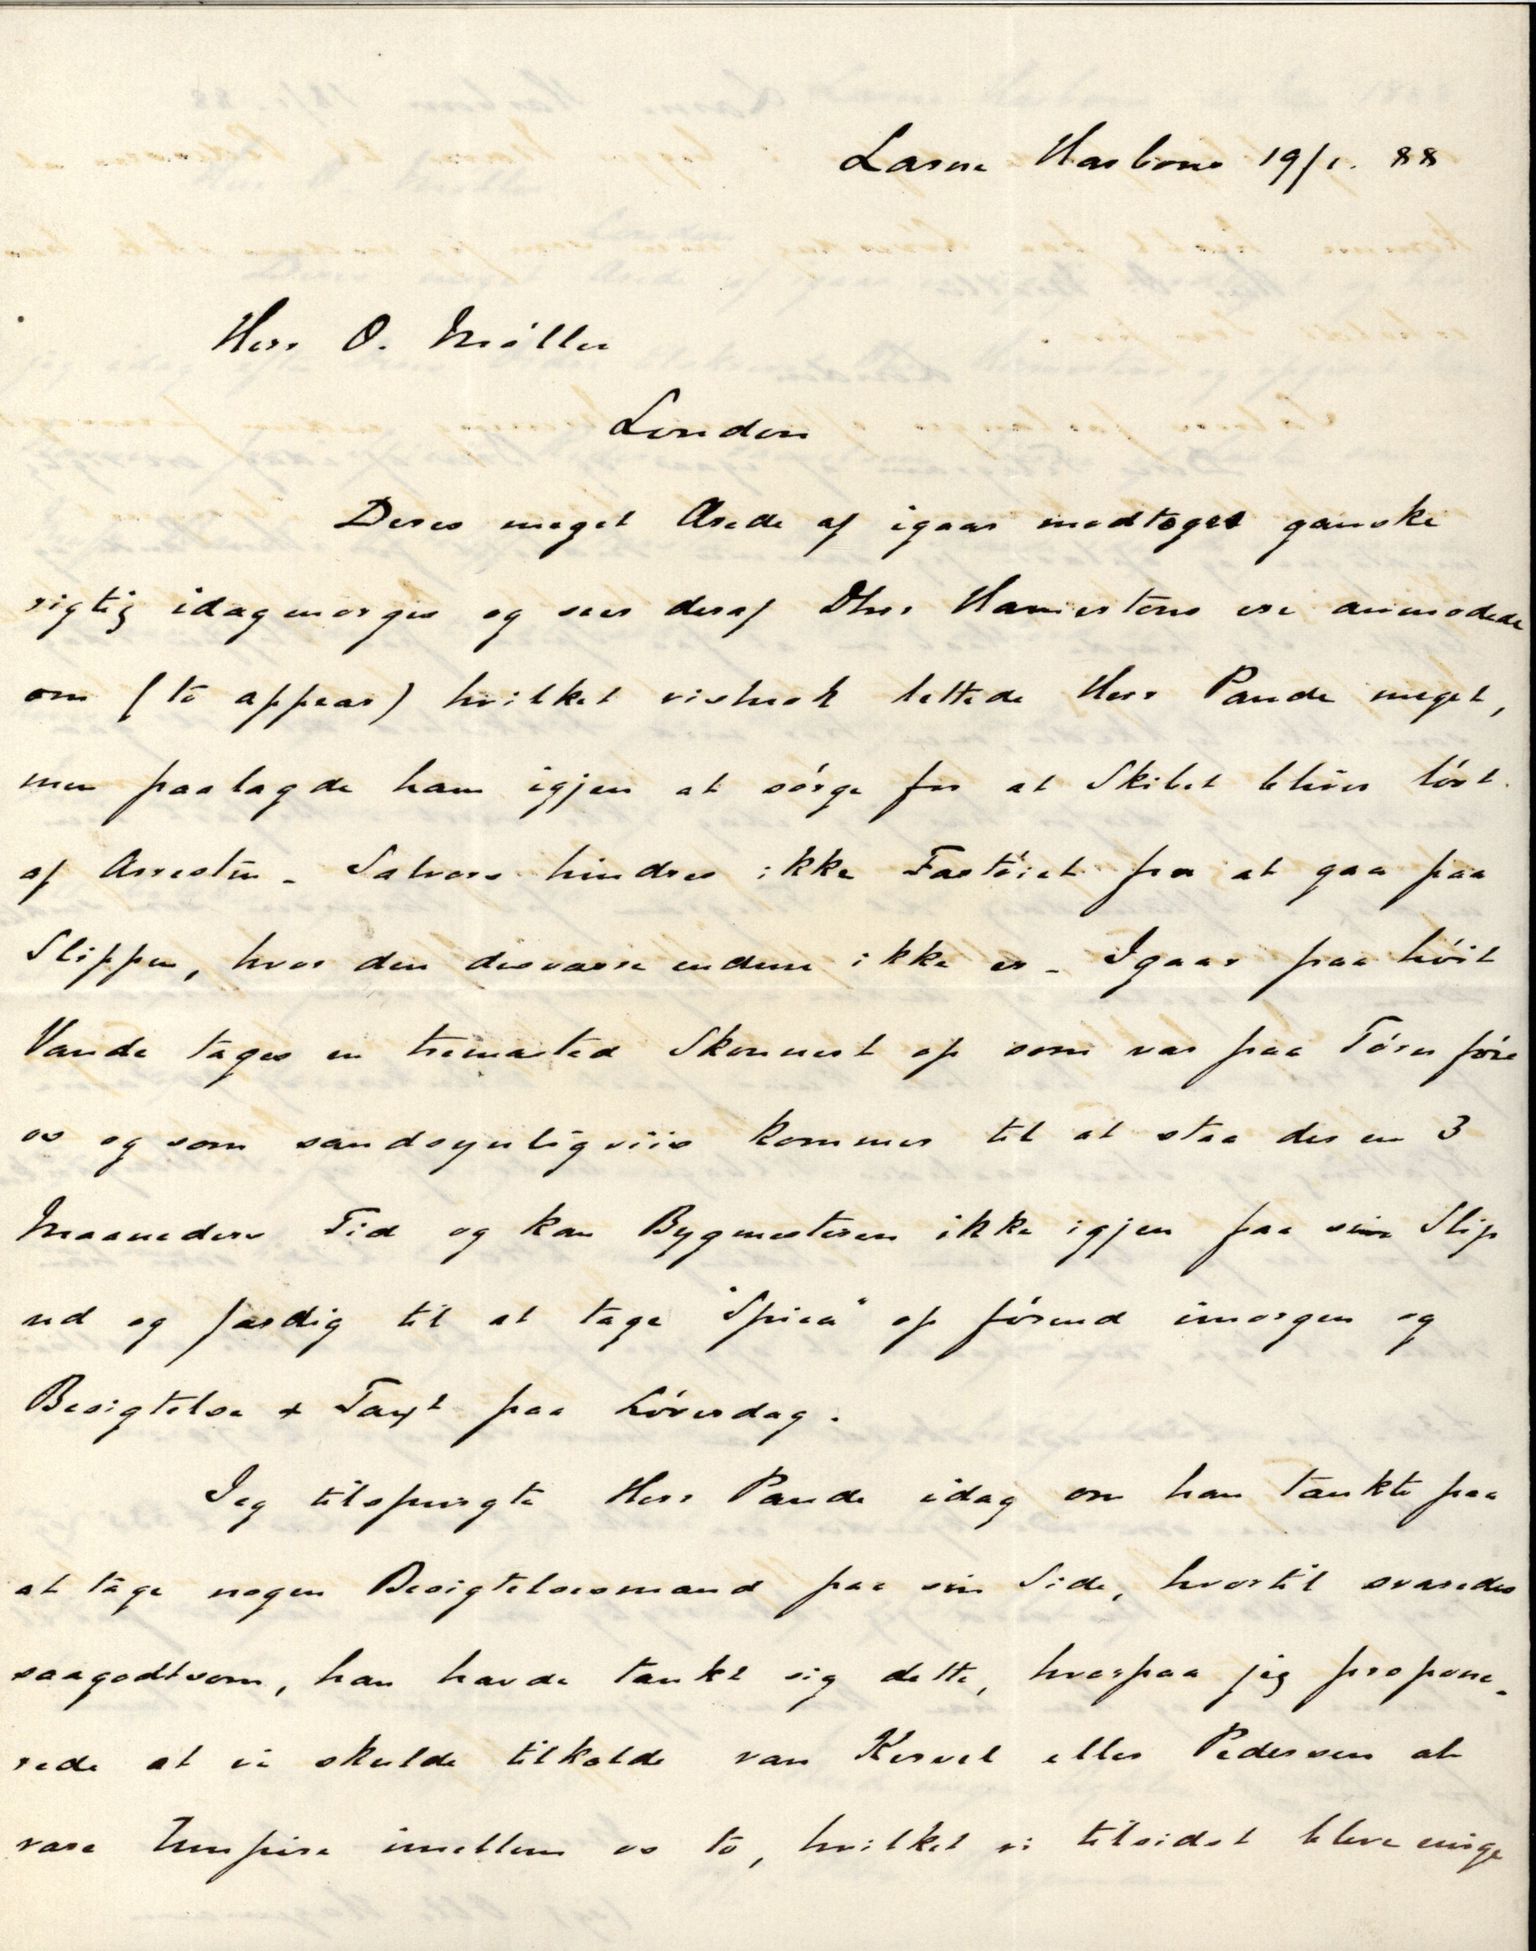 Larne Harbour 19/1. 88
Herr O. Møller
London
Deres meget Ærede af igaar modtoges ganske
rigtig idagmorges og sees deraf Dhrr Hamiltons ere anmodede
om (to appear) hvilket vistnok lettede Herr Pande meget,
men paalagde ham igjen at sørge for at Skibet bliver løst
af Arresten - Salvors hindres ikke Fartøiet fra at gaa paa
Slippen, hvor den desværre endnu ikke er - Igaar paa høit
Vande toges en tremasted Skonnert op som var paa Tørn føre
os og som sandsynligviis kommer til at staa der en 3
Maaneders Tid og kan Bygmesteren ikke igjen faa sin Slip
ud og færdig til at tage "Spica" op førend imorgen og
Besigtelse & Taxt paa Løverdag.
Jeg tilspurgte Herr Pande idag om han tænkte paa
at tage nogen Besigtelsesmand paa sin Side, hvortil svaredes
saagodtsom, han havde tænkt sig dette, hvorpaa jeg propone-
rede at vi skulde tilkalde van Kervel eller Pedersen at
være Umpire imellem os to, hvilket vi tilsidst bleve enige